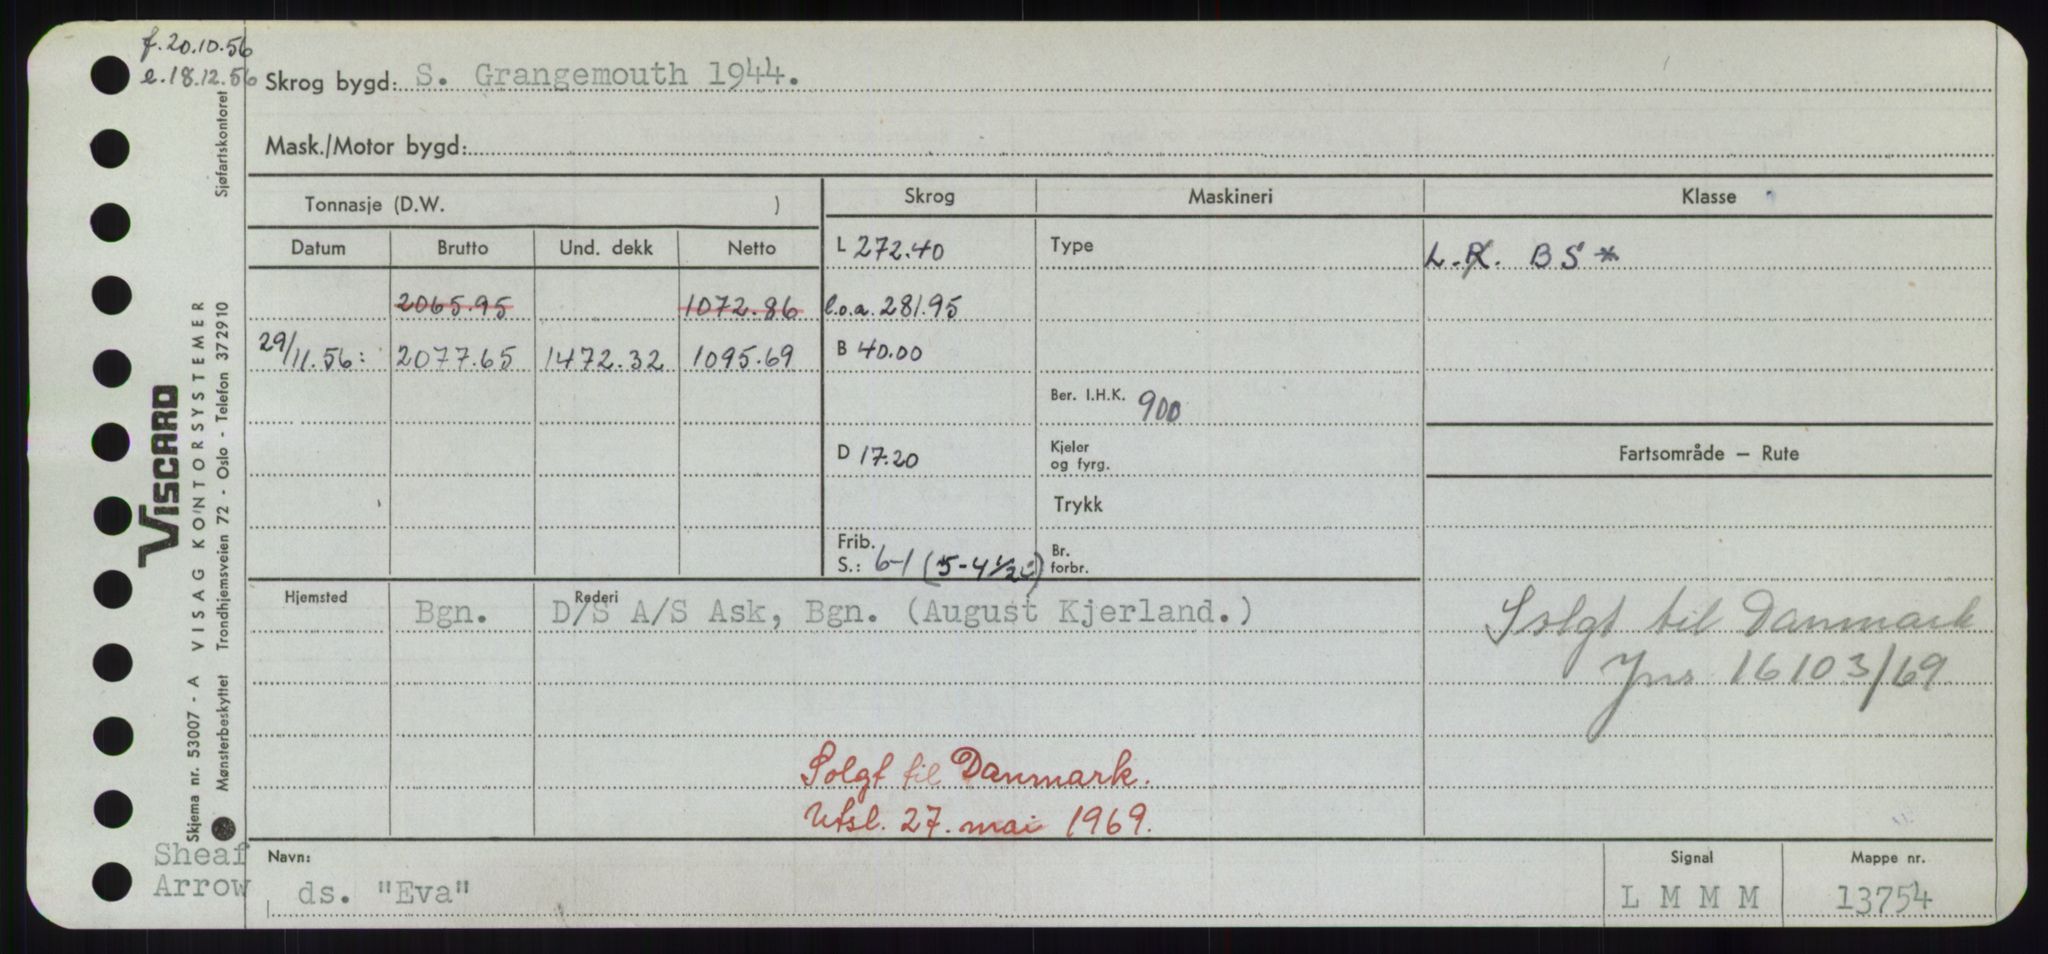 f. 20.10.56
e. 18.12.56
Skrog bygd: S. Grangemouth 1944.
Mask./Motor bygd:
Tonnasje (D.W. )
Skrog Maskineri Klasse
Datum Brutto Und. dekk Netto
L 272.40 Type L.R. BS*
2065.95 1072.86 l.o.a. 281.95
29/11.56: 2077.65 1472.32 1095.69 B 40.00
Ber. I.H.K. 900
D 17.20 Kjeler og fyrg. Fartsområde — Rute
Trykk
Frib. S.: 6-1 (5-4½) Br. forbr.
Hjemsted Bgn. Rederi D/S A/S Ask, Bgn. (August Kjerland.)
Solgt til Danmark
Jnr 16103/69
Solgt til Danmark.
Utsl. 27. mai 1969.
Sheaf
Arrow
Navn: ds. "Eva"
Signal L M M M
Mappe nr. 13754
VISCARD
VISAG KONTORSYSTEMER
Skjema nr. 53007 - A
Mønsterbeskyttet Trondhjemsveien 72 - Oslo - Telefon 372910
Sjøfartskontoret